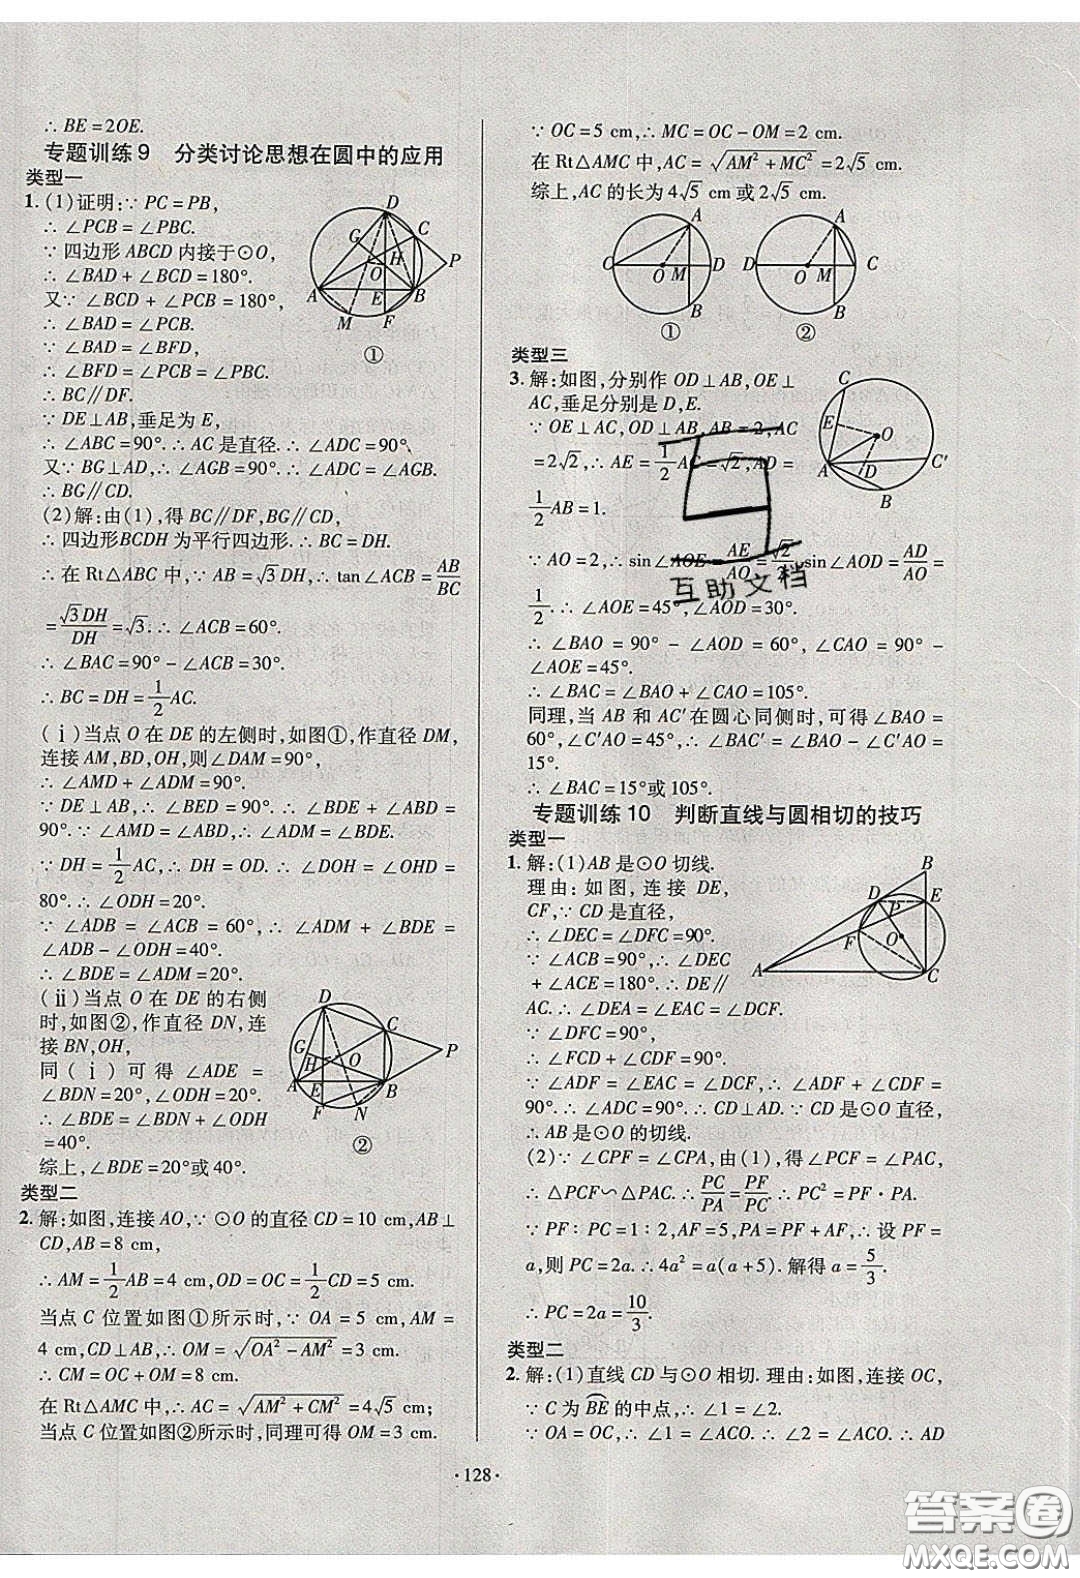 ∴ BE=2OE.
专题训练9 分类讨论思想在圆中的应用
类型一
1. (1)证明:∵ PC=PB,
∴ ∠PCB=∠PBC.
∵ 四边形 ABCD 内接于⊙O,
∴ ∠BAD+∠BCD=180°.
又∵ ∠BCD+∠PCB=180°,
∴ ∠BAD=∠PCB.
∵ ∠BAD=∠BFD,
∴ ∠BFD=∠PCB=∠PBC.
∴ BC∥DF.
∵ DE⊥AB,垂足为 E,
∴ ∠ABC=90°.∴ AC 是直径.∴ ∠ADC=90°.
又∵ BG⊥AD,∴ ∠AGB=90°.∴ ∠ADC=∠AGB.
∴ BG∥CD.
(2)解:由(1),得 BC∥DF,BG∥CD,
∴ 四边形BCDH 为平行四边形.∴ BC=DH.
∴ 在 Rt△ABC 中,∵ AB=√3DH,∴ tan∠ACB=AB/BC
=√3DH/DH=√3.∴ ∠ACB=60°.
∴ ∠BAC=90°-∠ACB=30°.
∴ BC=DH=1/2AC.
(ⅰ)当点 O 在 DE 的左侧时,如图①,作直径 DM,
连接 AM,BD,OH,则∠DAM=90°,
∴ ∠AMD+∠ADM=90°.
∵ DE⊥AB,∴ ∠BED=90°.∴ ∠BDE+∠ABD=90°.
∵ ∠AMD=∠ABD,∴ ∠ADM=∠BDE.
∵ DH=1/2AC,∴ DH=OD.∴ ∠DOH=∠OHD=
80°.∴ ∠ODH=20°.
∵ ∠ADB=∠ACB=60°,∴ ∠ADM+∠BDE=
∠ADB-∠ODH=40°.
∴ ∠BDE=∠ADM=20°.
(ⅱ)当点 O 在 DE 的右侧
时,如图②,作直径 DN,连
接 BN,OH,
同(ⅰ)可得∠ADE=
∠BDN=20°,∠ODH=20°.
∴ ∠BDE=∠BDN+∠ODH
=40°.
综上,∠BDE=20°或40°.
D
G
C
O
H
P
A
E
B
M
F
①
D
G
C
H
O
P
A
E
B
F
N
②
类型二
2. 解:如图,连接 AO,∵ ⊙O 的直径 CD=10 cm,AB⊥
CD,AB=8 cm,
∴ AM=1/2AB=4 cm,OD=OC=1/2CD=5 cm.
当点 C 位置如图①所示时,∵ OA=5 cm,AM=
4 cm,CD⊥AB,∴ OM=√(OA²-AM²)=3 cm.
∴ CM=OC+OM=8 cm.
在 Rt△AMC 中,∴ AC=√(AM²+CM²)=4√5 cm;
当点 C 位置如图②所示时,同理可得 OM=3 cm.
∵ OC=5 cm,∴ MC=OC-OM=2 cm.
在 Rt△AMC 中,AC=√(AM²+MC²)=2√5 cm.
综上,AC 的长为 4√5 cm或 2√5 cm.
A
C
O
M
D
B
①
A
D
O
M
C
B
②
类型三
3. 解:如图,分别作 OD⊥AB,OE⊥
AC,垂足分别是 D,E.
∵ OE⊥AC,OD⊥AB,AB=2,AC
=2√2,∴ AE=1/2AC=√2,AD=
1/2AB=1.
∵ AO=2,∴ sin∠AOE=AE/AO=√2/2,sin∠AOD=AD/AO=
1/2.∴ ∠AOE=45°,∠AOD=30°.
∴ ∠BAO=90°-∠AOD=60°,∠CAO=90°-
∠AOE=45°.
∴ ∠BAC=∠BAO+∠CAO=105°.
同理,当 AB 和 AC′在圆心同侧时,可得∠BAO=
60°,∠C′AO=45°,∴ ∠BAC′=∠BAO-∠C′AO=
15°.
∴ ∠BAC=15°或 105°.
C
E
O
A
D
C′
B
互助文档
专题训练10 判断直线与圆相切的技巧
类型一
1. 解:(1)AB 是⊙O 切线.
理由:如图,连接 DE,
CF,∵ CD 是直径,
∴ ∠DEC=∠DFC=90°.
∵ ∠ACB=90°,∴ ∠DEC
+∠ACE=180°.∴ DE∥
AC.∴ ∠DEA=∠EAC=∠DCF.
∵ ∠DFC=90°,
∴ ∠FCD+∠CDF=90°.
∵ ∠ADF=∠EAC=∠DCF,∴ ∠ADF+∠CDF=
90°.∴ ∠ADC=90°.∴ CD⊥AD.∵ CD 是⊙O 直径,
∴ AB 是⊙O 的切线.
(2)∵ ∠CPF=∠CPA,由(1),得∠PCF=∠PAC,
∴ △PCF∽△PAC.∴ PC/PA=PF/PC.∴ PC²=PF·PA.
∵ PF∶PC=1∶2,AF=5,PA=PF+AF,∴ 设 PF=
a,则 PC=2a.∴4a²=a(a+5). 解得 a=5/3.
∴ PC=2a=10/3.
B
D
E
P
F
O
A
C
类型二
2. 解:(1)直线 CD 与⊙O 相切. 理由:如图,连接 OC,
∵ C 为BE的中点,∴ ∠1=∠2.
∵ OA=OC,∴ ∠1=∠ACO.∴ ∠2=∠ACO.∴ AD
·128·
答案圈
MXQE.COM